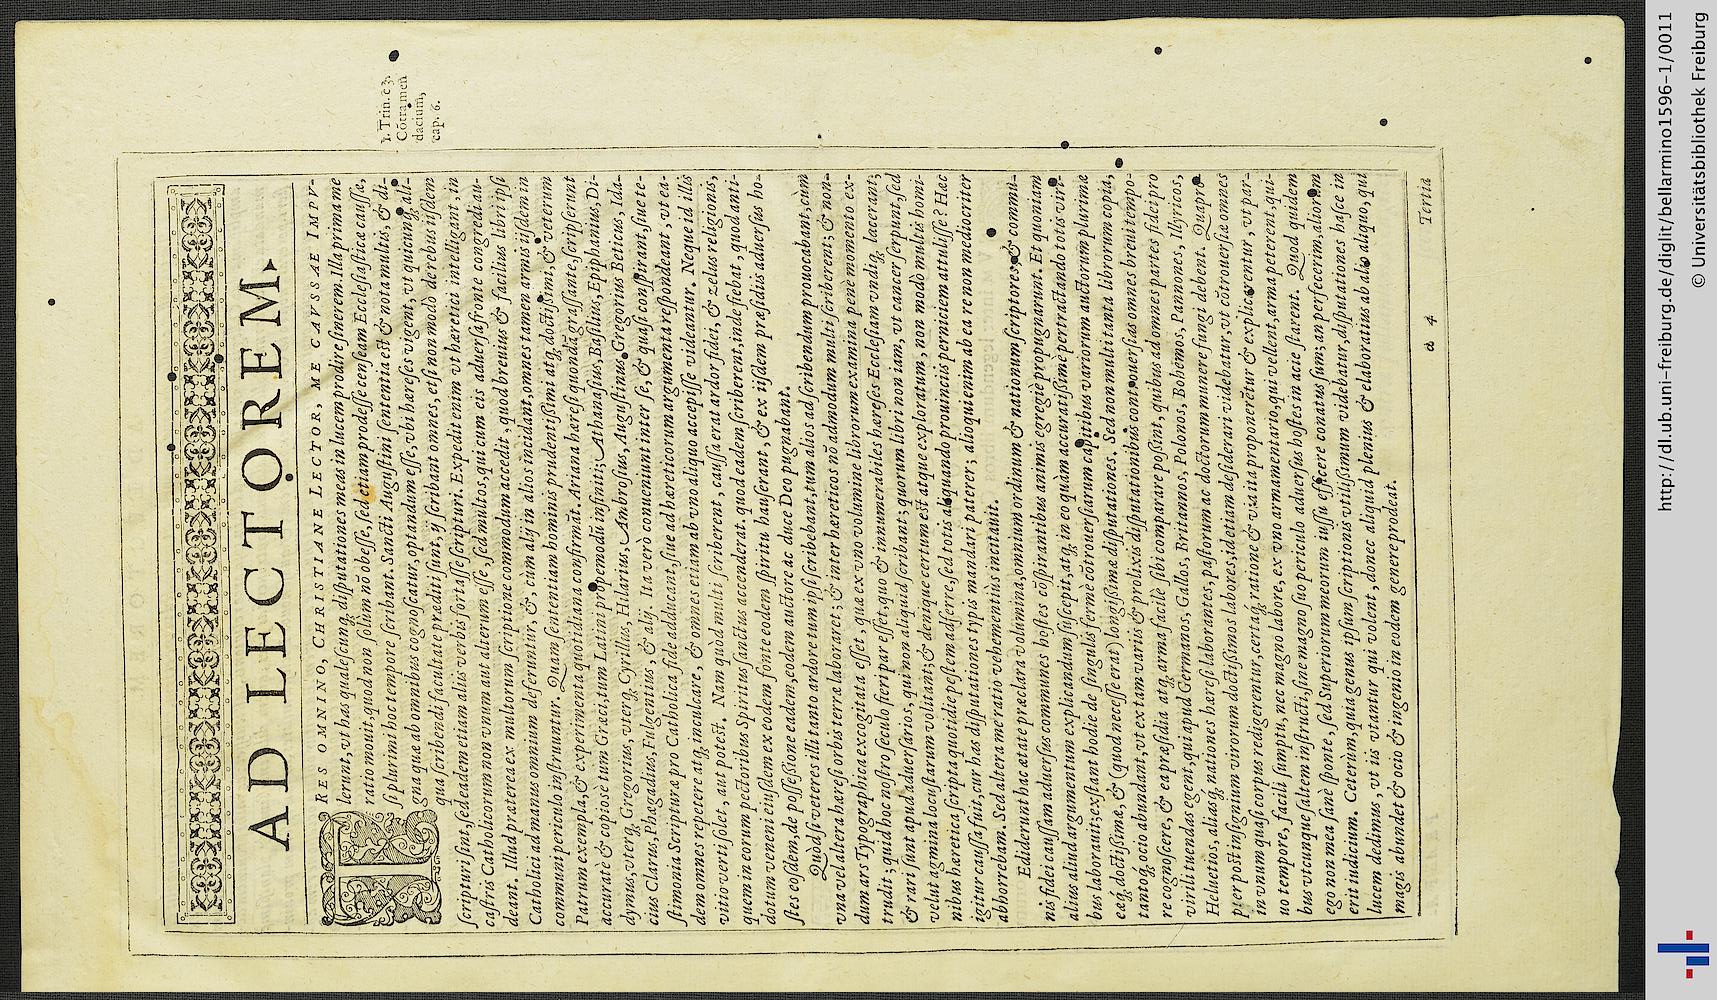 AD LECTOREM.
TRES OMNINO, CHRISTIANE LECTOR, ME CAVSSAE IMPV-
lerunt, vt has qualescunq; disputationes meas in lucem prodire sinerem. Illa prima me
ratio mouit, quod non solùm nō obesse, sed etiam prodesse censeam Ecclesiasticæ caussæ,
si plurimi hoc tempore scribant. Sancti Augustini sententia est & nota multis, & di-
gna quæ ab omnibus cognoscatur, optandum esse, vbi hæreses vigent, vt quicunq; ali-
qua scribendi facultate præditi sunt, ij scribant omnes, etsi non modo de rebus iisdem
scripturi sint, sed eadem etiam aliis verbis fortasse scripturi. Expedit enim vt hæretici intelligant, in
castris Catholicorum non vnum aut alterum esse, sed multos, qui cum eis aduersa fronte congredi au-
deant. Illud præterea ex multorum scriptione commodum accedit, quod breuius & facilius libri ipsi
Catholici ad manus omnium deferuntur, &, cum alij in alios incidant, omnes tamen armis iisdem in
communi periculo instruuntur. Quam sententiam hominis prudentissimi atq; doctissimi, & veterum
Patrum exempla, & experimenta quotidiana confirmāt. Ariana hæresi quondā grassante, scripserunt
accuratè & copiosè tum Græci, tum Latini propemodū infiniti; Athanasius, Basilius, Epiphanius, Di-
dymus, vterq; Gregorius, vterq; Cyrillus, Hilarius, Ambrosius, Augustinus, Gregorius Beticus, Ida-
cius Clarus, Phœgadius, Fulgentius, & alij. Ita verò conueniunt inter se, & quasi conspirant, siue te-
stimonia Scripturæ pro Catholica fide adducant, siue ad hæreticorum argumenta respondeant, vt ea-
dem omnes repetere atq; inculcare, & omnes etiam ab vno aliquo accepisse videantur. Neque id illis
vitio verti solet, aut potest. Nam quod multi scriberent, caussa erat ardor fidei, & zelus religionis,
quem in eorum pectoribus Spiritus sanctus accenderat. quod eadem scriberent, inde fiebat, quod anti-
dotum veneni eiusdem ex eodem fonte eodem spiritu hauserant, & ex iisdem præsidiis aduersus ho-
stes eosdem, de possessione eadem, eodem auctore ac duce Deo pugnabant.
Quòd si veteres illi tanto ardore tum ipsi scribebant, tum alios ad scribendum prouocabant, cùm
vna vel altera hæresi orbis terræ laboraret; & inter hæreticos nō admodum multi scriberent; & non-
dum ars Typographica excogitata esset, quæ ex vno volumine librorum examina pene momento ex-
trudit; quid hoc nostro seculo fieri par esset, quo & innumerabiles hæreses Ecclesiam vndiq; lacerant;
& rari sunt apud aduersarios, qui non aliquid scribant; quorum libri non iam, vt cancer serpunt, sed
velut agmina locustarum volitant; & denique certum est atque exploratum, non modò multis homi-
nibus hæretica scripta quotidie pestem adferre, sed totis aliquando prouinciis perniciem attulisse? Hæc
igitur caussa fuit, cur has disputationes typis mandari paterer; alioqui enim ab ea re non mediocriter
abhorrebam. Sed altera me ratio vehementiùs incitauit.
Ediderunt hac ætate præclara volumina, omnium ordinum & nationum scriptores, & commu-
nis fidei caussam aduersus communes hostes cōspirantibus animis egregiè propugnarunt. Et quoniam
alius aliud argumentum explicandum suscepit, atq; in eo quàm accuratissime pertractando totis viri-
bus laborauit; exstant hodie de singulis fermè cōtrouersiarum capitibus variorum auctorum plurimæ
eæq; doctissimæ, & (quod necesse erat) longissimæ disputationes. Sed non multi tanta librorum copia,
tantoq; ocio abundant, vt ex tam variis & prolixis disputationibus controuersias omnes breui tempo-
re cognoscere, & ea præsidia atq; arma facilè sibi comparare possint, quibus ad omnes partes fidei pro
virili tuendas egent, qui apud Germanos, Gallos, Britannos, Polonos, Bohemos, Pannones, Illyricos,
Heluetios, aliosq; nationes hæresi laborantes, pastorum ac doctorum munere fungi debent. Quapro-
pter post insignium virorum doctissimos labores, id etiam desiderari videbatur, vt cōtrouersiæ omnes
in vnum quasi corpus redigerentur, certaq; ratione & via ita proponerētur & explicarentur, vt par-
uo tempore, facili sumptu, nec magno labore, ex vno armamentario, qui vellent, arma peterent, qui-
bus vtcunque saltem instructi, sine magno suo periculo aduersus hostes in acie starent. Quod quidem
ego non mea sanè sponte, sed Superiorum meorum iussu efficere conatus sum; an perfecerim, aliorum
erit iudicium. Ceterùm, quia genus ipsum scriptionis vtilissimum videbatur, disputationes hasce in
lucem dedimus, vt iis vtantur qui volent, donec aliquid plenius & elaboratius ab alio aliquo, qui
magis abundet & ocio & ingenio in eodem genere prodeat.
1. Trin. c. 3.
Cōtra men
dacium,
cap. 6.
a 4
Tertia
http://dl.ub.uni-freiburg.de/diglit/bellarmino1596-1/0011
© Universitätsbibliothek Freiburg